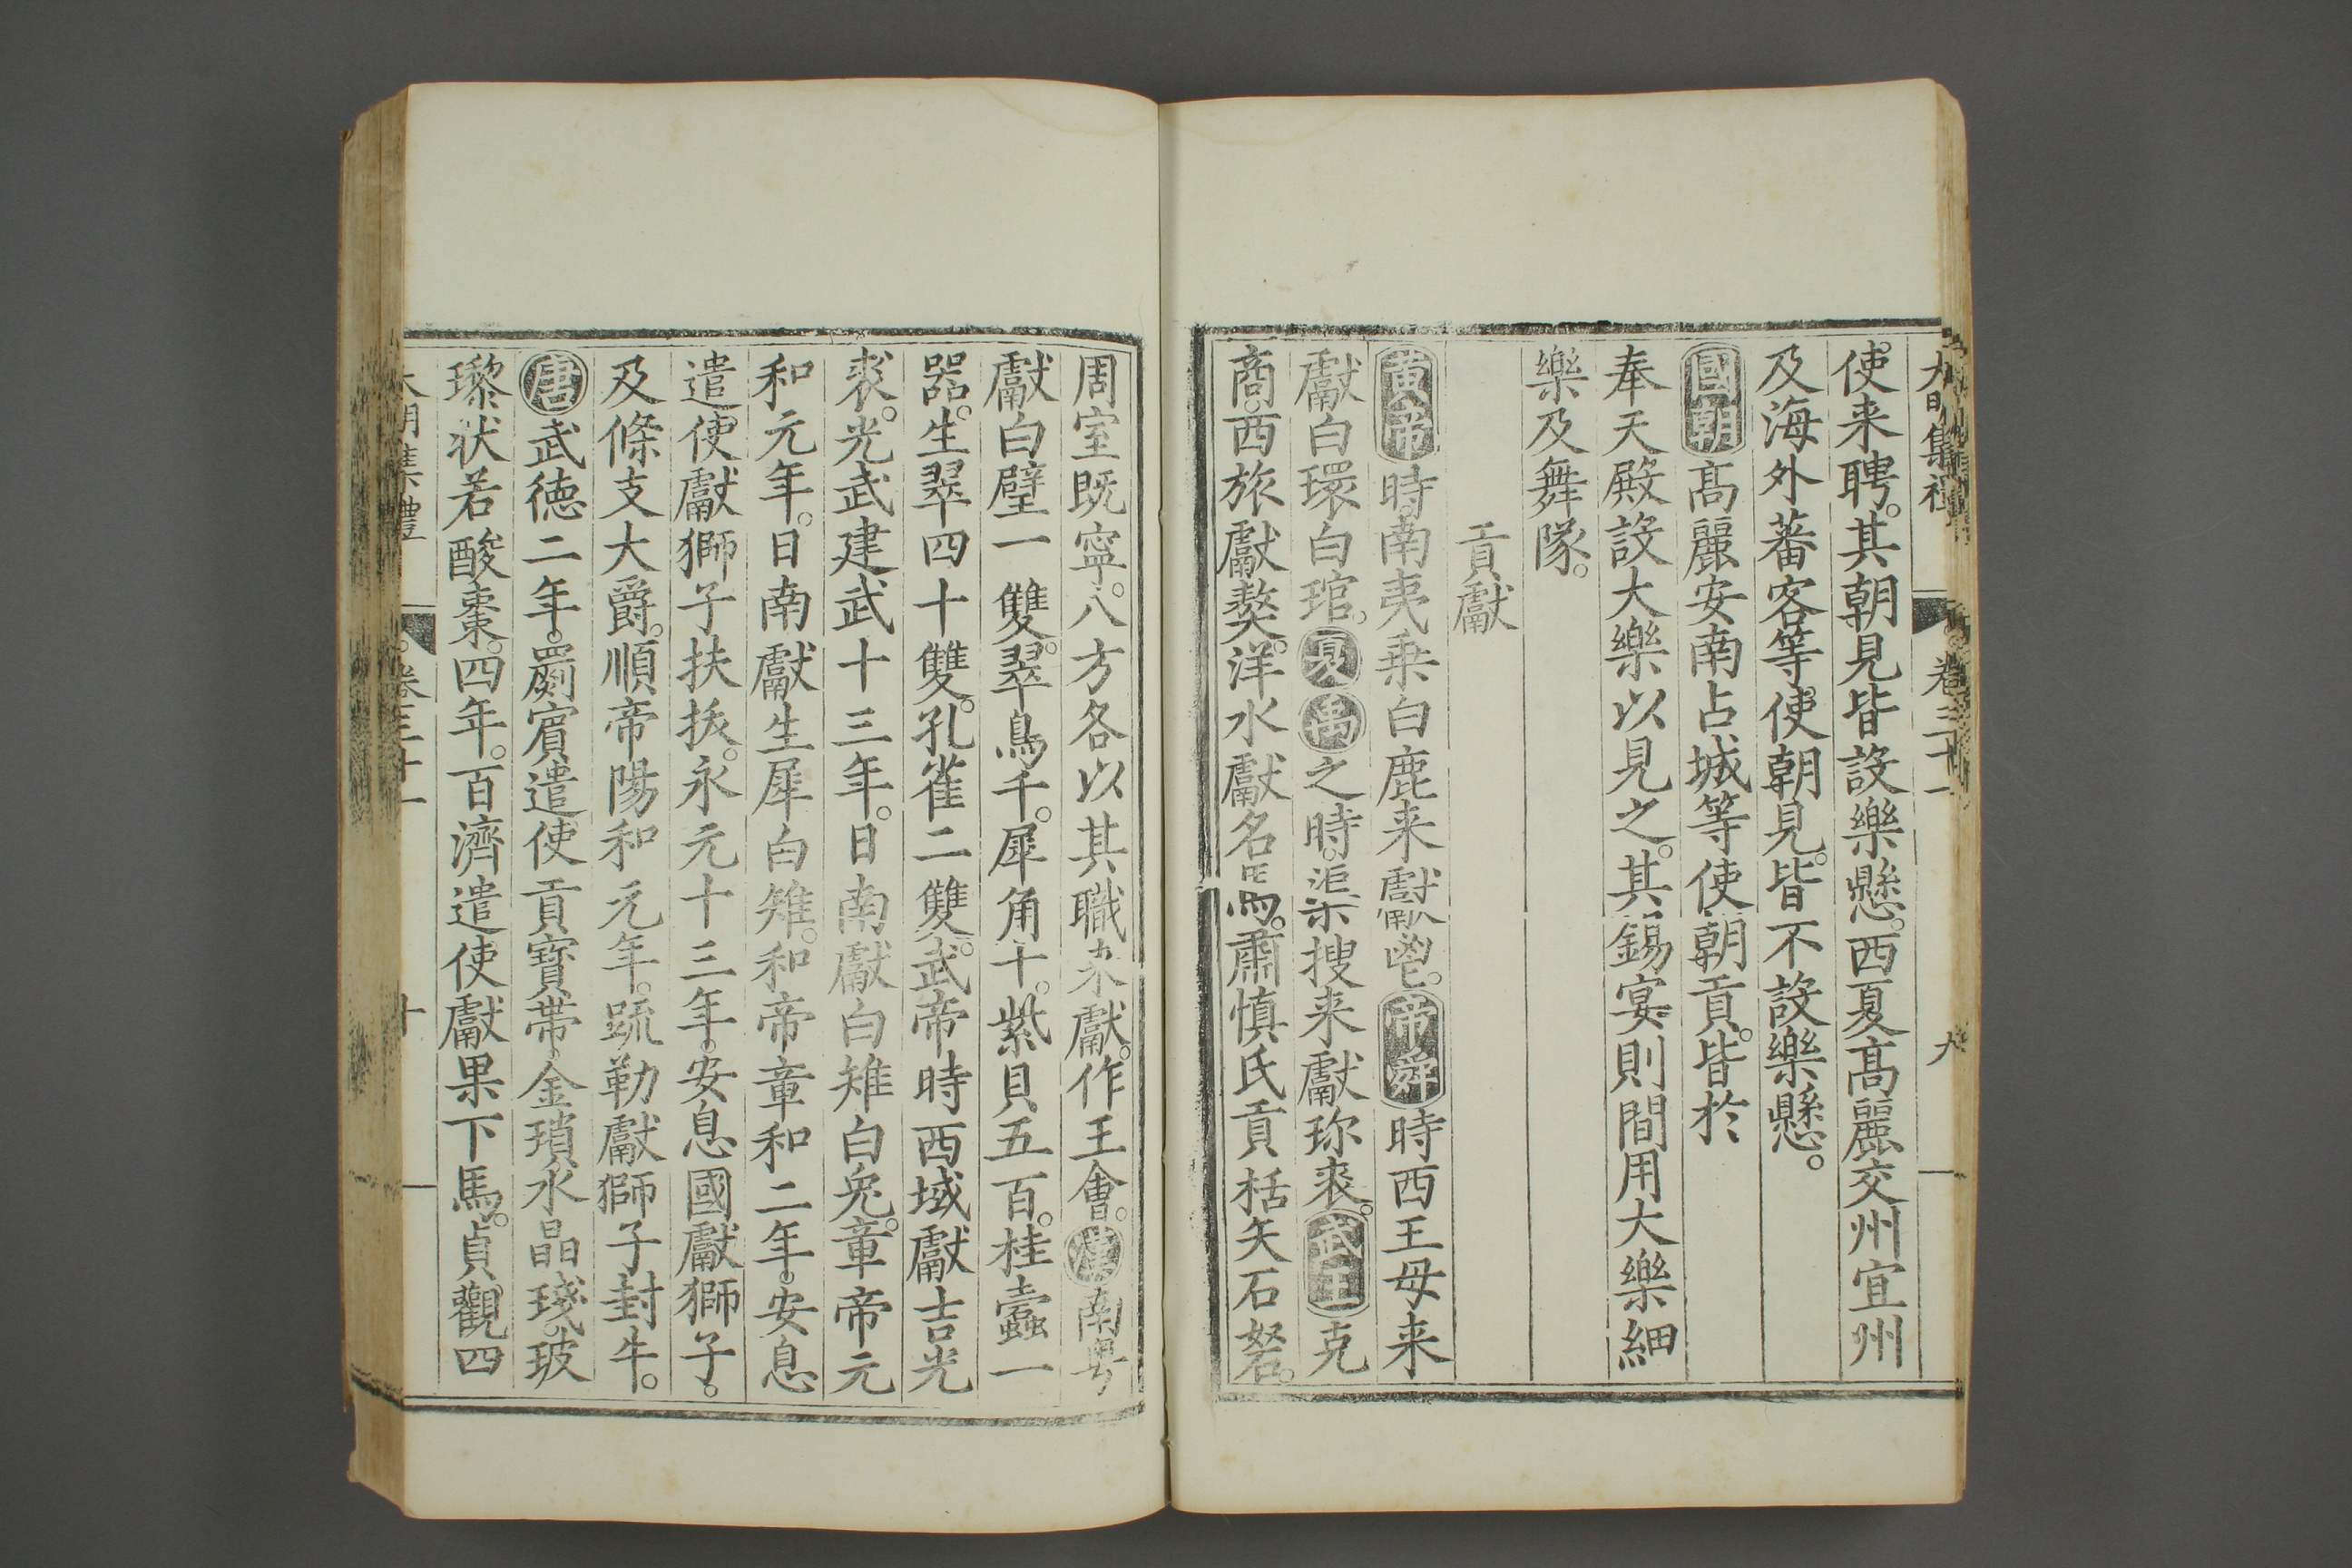 使来聘。其朝見皆設樂懸。西夏髙麗交州宜州
及海外蕃客等使朝見。皆不設樂懸。
國朝髙麗安南占城等使朝貢。皆於
奉天殿設大樂以見之。其錫宴則間用大樂細
樂及舞隊。
貢獻
黄帝時。南夷乗白鹿来獻鬯。帝舜時西王母来
獻白環白琯。夏禹之時。渠搜来獻珎裘。武王克
商。西旅獻獒。洋水獻名馬。肅慎氏貢栝矢石砮。
周室既寧。八方各以其職来獻。作王㑹。漢南粤
獻白璧一雙。翠鳥千。犀角十。紫貝五百。桂蠹一
器。生翠四十雙。孔雀二雙。武帝時西域獻吉光
裘。光武建武十三年。日南獻白雉白兔。章帝元
和元年。日南獻生犀白雉。和帝章和二年。安息
遣使獻獅子扶㧞。永元十三年。安息國獻獅子。
及條支大爵。順帝陽和元年。踈勒獻獅子封牛。
唐武徳二年。罽賓遣使貢寳帶。金瑣水晶琖。玻
瓈状若酸棗。四年。百濟遣使獻果下馬。貞觀四
大明集禮 卷三十一 十